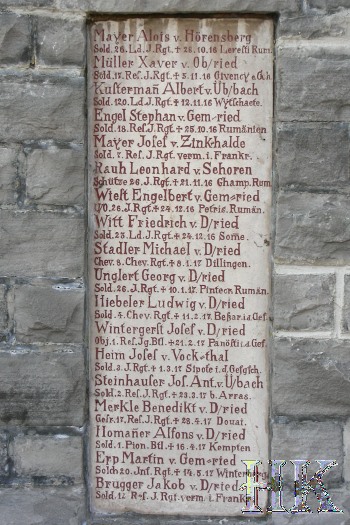 Mayer Alois v. Hörensberg
Sold. 26. Ld. J. Rgt. + 28. 10. 16 Leresti Rum.
Müller Xaver v. Ob/ried
Sold. 17. Ref. J. Rgt. + 5. 11. 16 Givency
Kusterman Albert v. U/bach
Sold. 120. Ld. J. Rgt. + 12. 11. 16 Wytschaete.
Engel Stephan v. Gem=ried
Sold. 18. Ref. J. Rgt. + 25. 10. 16 Rumänien
Mayer Josef v. Zink=halde
Sold. 7. Ref. J. Rgt. verm. i. Frankr.
Rauh Leonhard v. Sehoren
Schütze 26. J. Rgt. + 21. 11. 16 Champ. Rum
Wiest Engelbert v. Gem=ried
U/O. 26. J. Rgt. + 24. 12. 16 Petris. Rumän.
Witt Friedrich v. D/ried
Sold. 23. Ld. J. Rgt. + 24. 12. 16 Some.
Stadler Michael v. D/ried
Chev. 8. Chev. Rgt. + 8. 1. 17 Dillingen.
Unglert Georg v. D/ried
Sold. 26. J. Rgt. + 10. 1. 17 Pinteck Rumän.
Hiebeler Ludwig v. D/ried
Sold. 4. Chev. Rgt. + 11. 2. 17 i. d. Gef.
Wintergerst Josef v. D/ried
Obj. 1. Ref. Jg. Btl. + 21. 2. 17 i. d. Gef.
Heim Josef v. Vock=thal
Sold. 3. J. Rgt. + 1. 3. 17
Steinhauser Jos. Ant. v. U/bach
Sold. 2. Ref. J. Rgt. + 23. 3. 17 b. Arras.
Merkle Benedikt v. D/ried
Gefr. 17. Ref. J. Rgt. + 28. 4. 17 Douai.
Homañer Alfons v. D/ried
Sold. 1. Pion. Btl. + 16. 4. 17 Kempten
Erp Martin v. Gem=ried
Sold. 20. Jnf. Rgt. + 14. 5. 17
Brugger Jakob v. D/ried
Sold. 12 Ref. J. Rgt. verm. i. Frankr.
HK